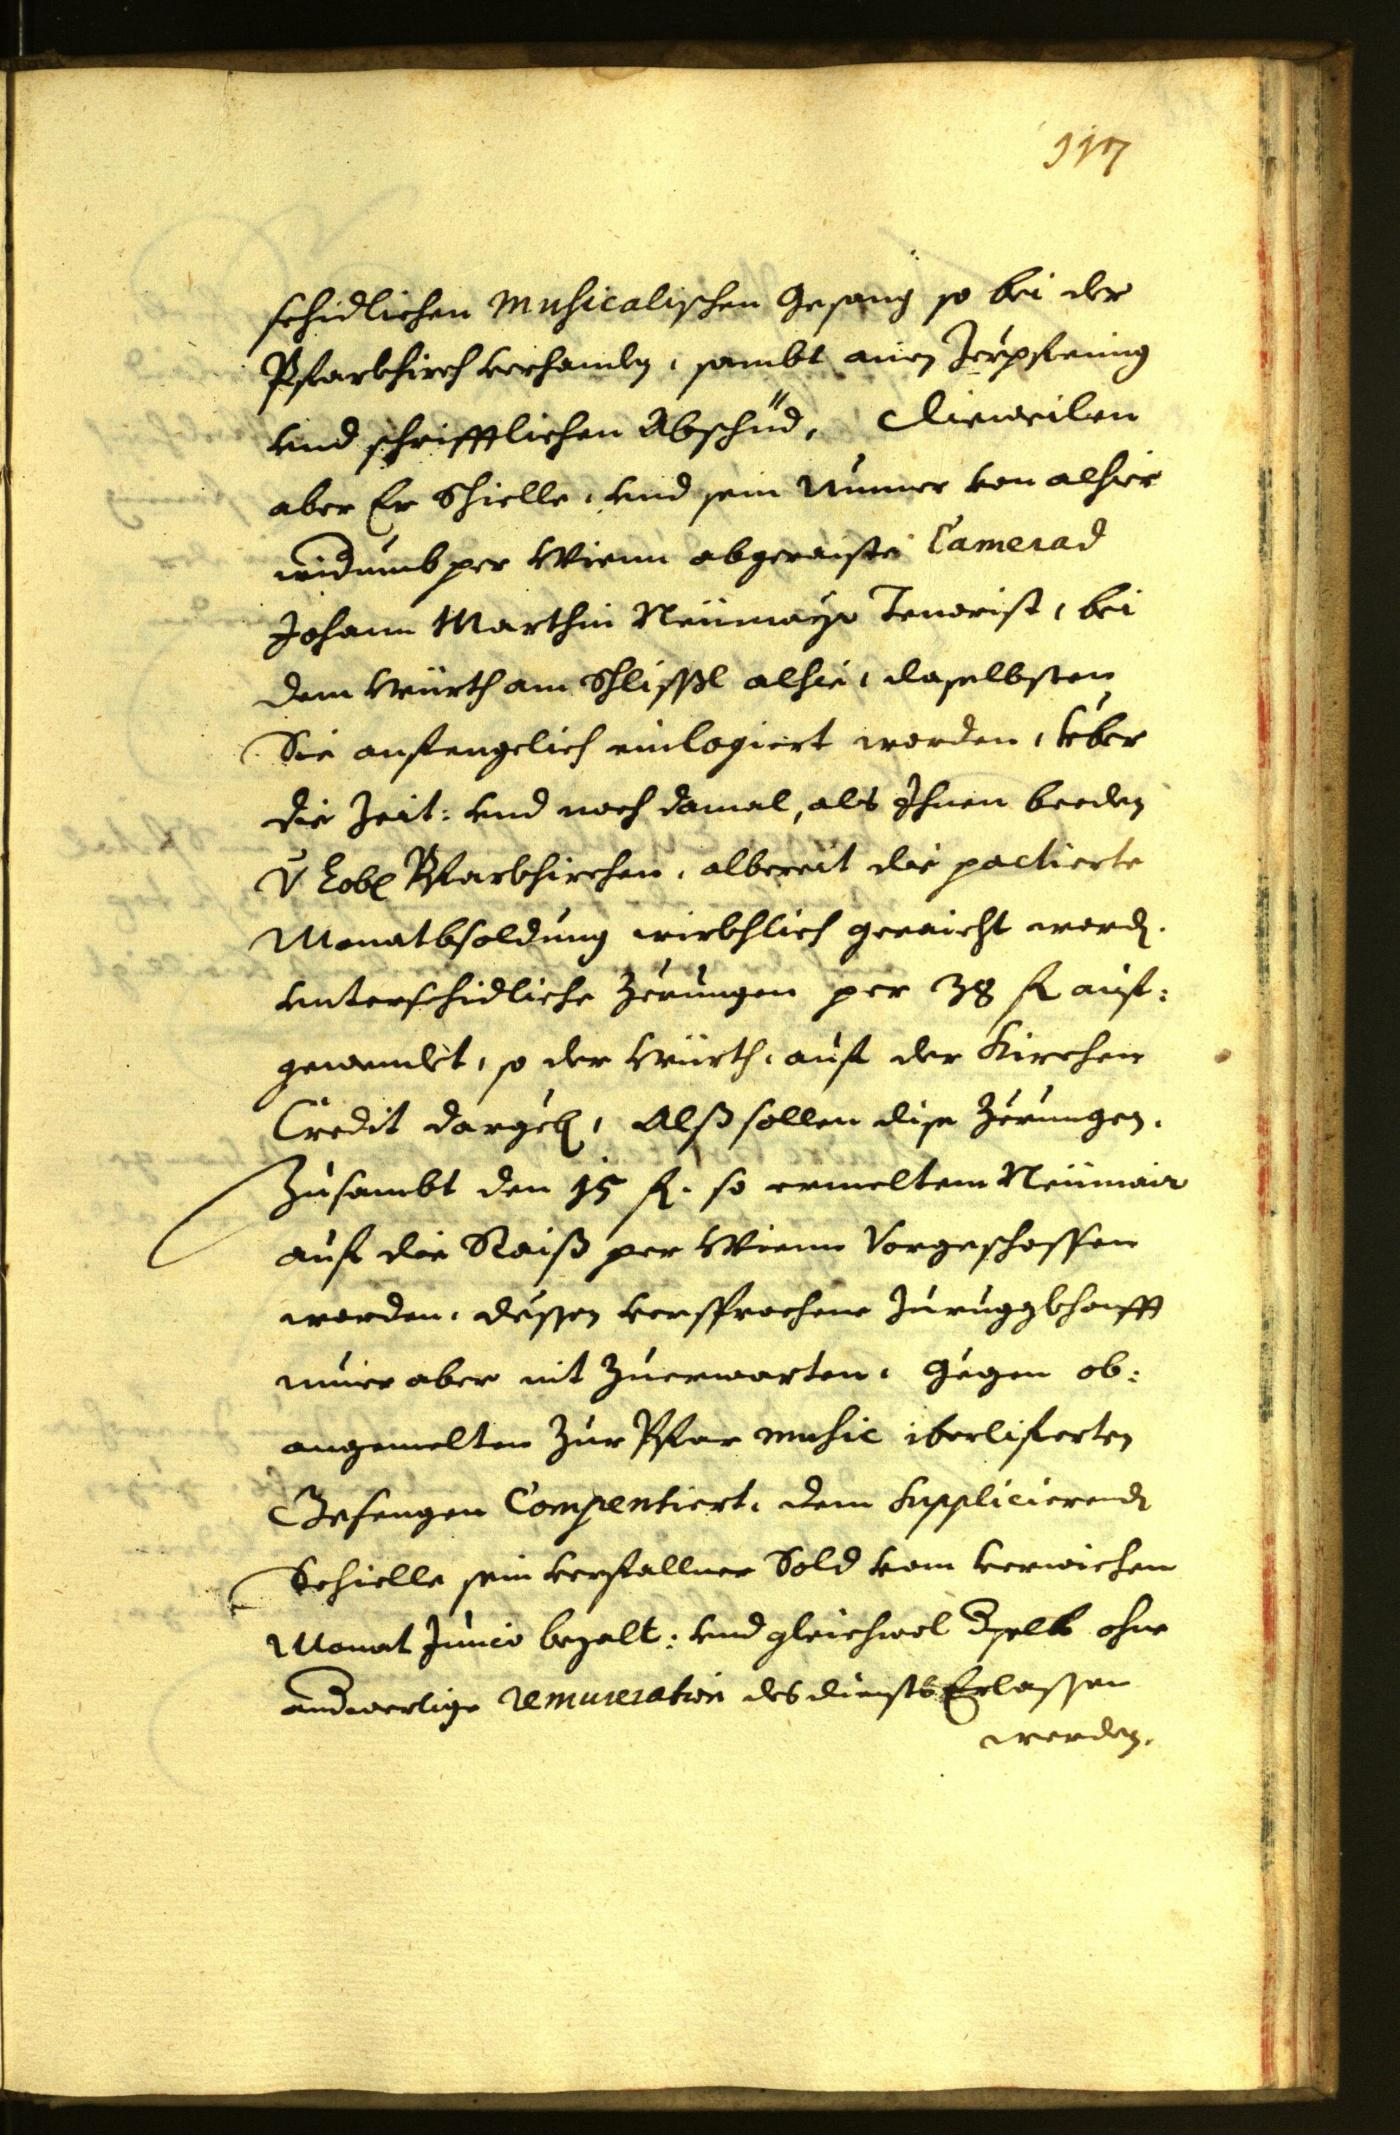 117
schidlichen Musicalischen Gesang so bei der
Pfarrkhirch verhandn, sambt ainen Zerpfening
vnd schrifftlichen Abschid, dieweilen
aber Er Schielle, vnd sein nunmer von alhier
widumb per Wienn abgeraister Camerad
Johann Marthin Neümayr Tenorist, bei
dem Würth am Schlissl alhie, daselbsten
Sie anfengelich einlogiert worden, über
die Zeit: vnd noch damal, als Ihnen beeden
V Lobl Pfarrkhirchen, albereit die pactierte
Monatbsoldung wirkhlich geraicht word.
vnterschidliche Zerungen per 38 fl auf:
gewendet, so der Würth, auf der Kirchen
Credit dargeb, Alß sollen dise Zerungen,
Zusambt den 15 fl. so ermeltem Neümair
auf die Raiß per Wienn Vorgeschossen
worden, dessen versprochene Zuruggkhonfft
nuier aber nit Zuerwarten, gegen ob:
angemelten Zur Pfarr music iberliferten
Gesengen Compentiert, dem Supplicierend
Schielle sein verfallner Sold vom verwichen
Monat Junio bezalt: vnd gleichwol dselb ohne
anderwertige remuneration des diensts Erlassen
werden.